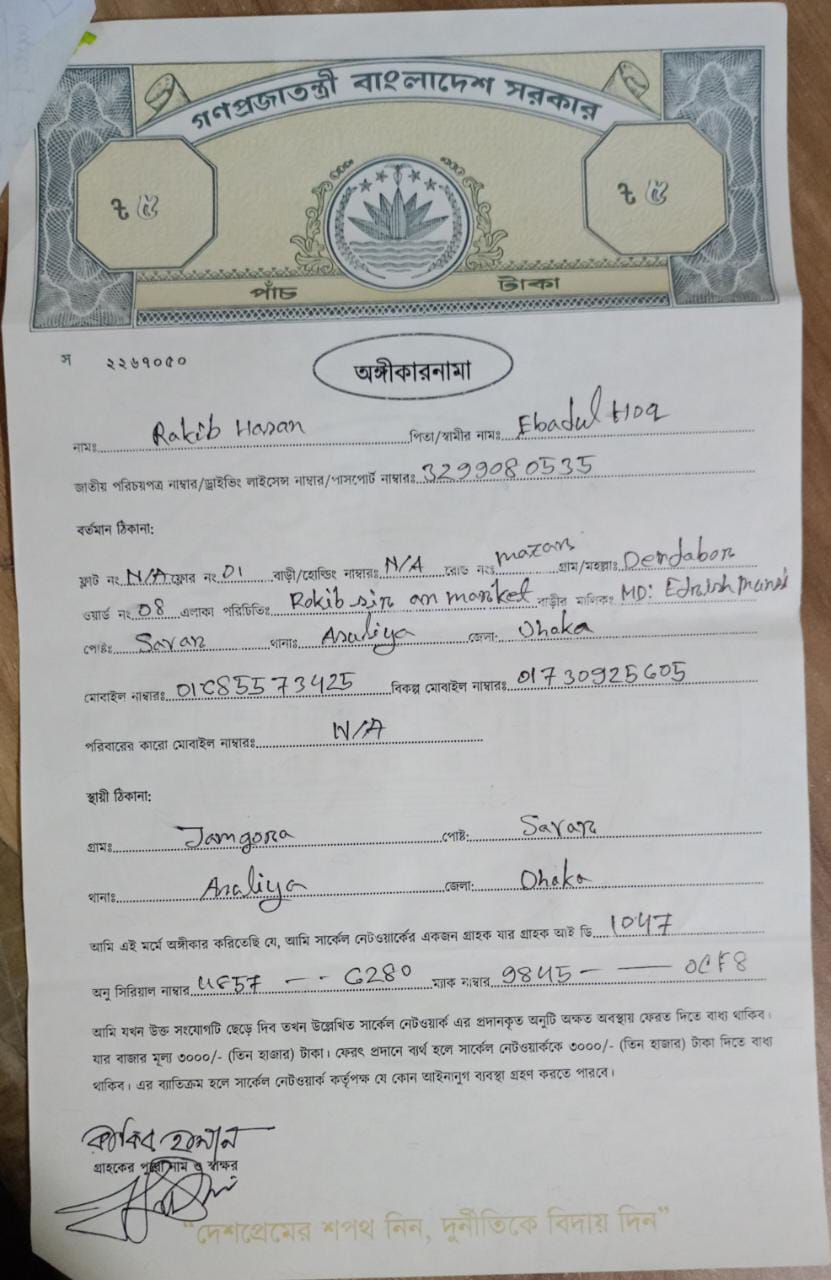 গণপ্রজাতন্ত্রী বাংলাদেশ সরকার
৳ ৫ ৳ ৫
পাঁচ টাকা
স ২২৬৭০৫০
অঙ্গীকারনামা
নামঃ Rakib Hasan পিতা/স্বামীর নামঃ Ebadul Hoq
জাতীয় পরিচয়পত্র নাম্বার/ড্রাইভিং লাইসেন্স নাম্বার/পাসপোর্ট নাম্বারঃ 3299080535
বর্তমান ঠিকানা:
ফ্লাট নং N/A ফ্লোর নং 01 বাড়ী/হোল্ডিং নাম্বারঃ N/A রোড নংঃ mazar গ্রাম/মহল্লাঃ Dendabor
ওয়ার্ড নং 08 এলাকা পরিচিতিঃ Rokib sir an market বাড়ীর মালিকঃ MD:
পোষ্টঃ Savar থানাঃ Asuliya জেলা: Dhaka
মোবাইল নাম্বারঃ বিকল্প মোবাইল নাম্বারঃ 01730925605
পরিবারের কারো মোবাইল নাম্বারঃ N/A
স্থায়ী ঠিকানা:
গ্রামঃ Jamgora পোষ্ট: Savar
থানাঃ Asuliya জেলা: Dhaka
আমি এই মর্মে অঙ্গীকার করিতেছি যে, আমি সার্কেল নেটওয়ার্কের একজন গ্রাহক যার গ্রাহক আই ডি 1047
অনু সিরিয়াল নাম্বার -- 6280 ম্যাক নাম্বার 9845 -- 0CF8
আমি যখন উক্ত সংযোগটি ছেড়ে দিব তখন উল্লেখিত সার্কেল নেটওয়ার্ক এর প্রদানকৃত অনুটি অক্ষত অবস্থায় ফেরত দিতে বাধ্য থাকিব।
যার বাজার মূল্য ৩০০০/- (তিন হাজার) টাকা। ফেরৎ প্রদানে ব্যর্থ হলে সার্কেল নেটওয়ার্ককে ৩০০০/- (তিন হাজার) টাকা দিতে বাধ্য
থাকিব। এর ব্যতিক্রম হলে সার্কেল নেটওয়ার্ক কর্তৃপক্ষ যে কোন আইনানুগ ব্যবস্থা গ্রহণ করতে পারবে।
রাকিব হাসান
গ্রাহকের পুরো নাম ও স্বাক্ষর
"দেশপ্রেমের শপথ নিন, দুর্নীতিকে বিদায় দিন"